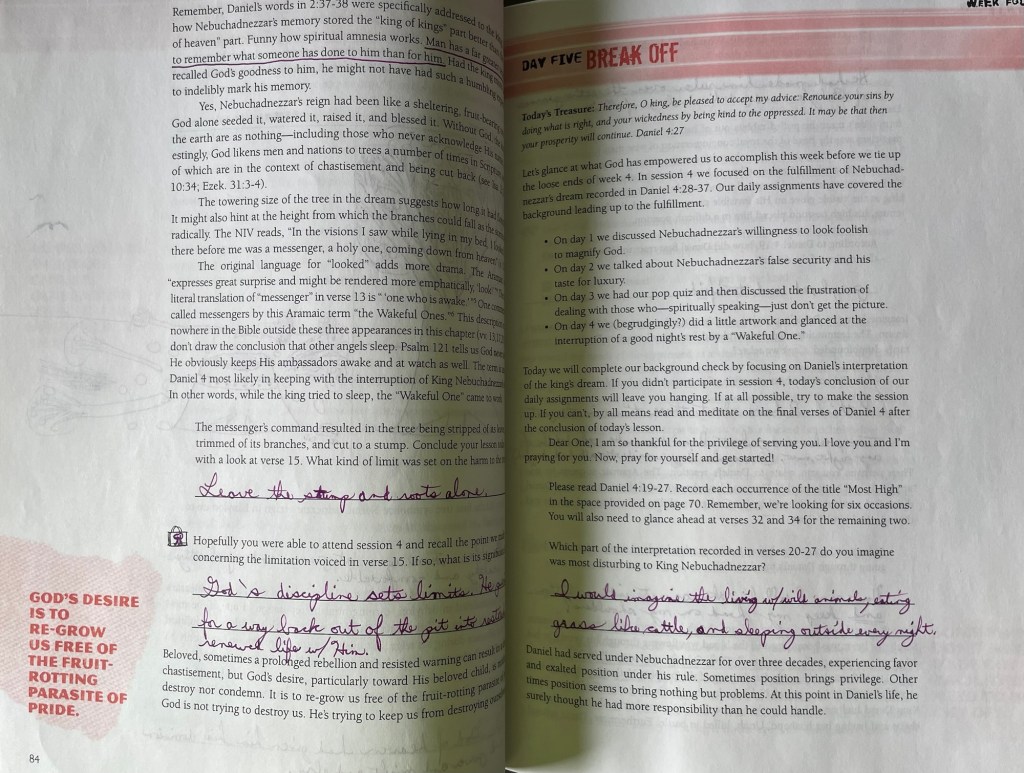 Remember, Daniel's words in 2:37-38 were specifically addressed to the
how Nebuchadnezzar's memory stored the "king of kings" part better
of heaven" part. Funny how spiritual amnesia works. Man has a far
to remember what someone has done to him than for him. Had the king
recalled God's goodness to him, he might not have had such a humbling
to indelibly mark his memory.
Yes, Nebuchadnezzar's reign had been like a sheltering, fruit-bearing
God alone seeded it, watered it, raised it, and blessed it. Without God,
the earth are as nothing—including those who never acknowledge His
estingly, God likens men and nations to trees a number of times in Scripture,
of which are in the context of chastisement and being cut back (see Isa.
10:34; Ezek. 31:3-4).
The towering size of the tree in the dream suggests how long it had
It might also hint at the height from which the branches could fall as the
radically. The NIV reads, "In the visions I saw while lying in my bed, I
there before me was a messenger, a holy one, coming down from heaven"
The original language for "looked" adds more drama. The
"expresses great surprise and might be rendered more emphatically, 'look!'"
literal translation of "messenger" in verse 13 is " 'one who is awake.' " One
called messengers by this Aramaic term "the Wakeful Ones." This
nowhere in the Bible outside these three appearances in this chapter (vv. 13,
don't draw the conclusion that other angels sleep. Psalm 121 tells us God
He obviously keeps His ambassadors awake and at watch as well. The term
Daniel 4 most likely in keeping with the interruption of King
In other words, while the king tried to sleep, the "Wakeful One" came to
The messenger's command resulted in the tree being stripped of its
trimmed of its branches, and cut to a stump. Conclude your lesson
with a look at verse 15. What kind of limit was set on the harm to the
Leave the stump and roots alone.
Hopefully you were able to attend session 4 and recall the point we
concerning the limitation voiced in verse 15. If so, what is its
God's discipline sets limits. He
for a way back out of the pit into
renewed life w/ Him.
Beloved, sometimes a prolonged rebellion and resisted warning can result in
chastisement, but God's desire, particularly toward His beloved child, is
destroy nor condemn. It is to re-grow us free of the fruit-rotting parasite
God is not trying to destroy us. He's trying to keep us from destroying
GOD'S DESIRE
IS TO
RE-GROW
US FREE OF
THE FRUIT-
ROTTING
PARASITE OF
PRIDE.
84
WEEK
DAY FIVE BREAK OFF
Today's Treasure: Therefore, O king, be pleased to accept my advice: Renounce your sins by
doing what is right, and your wickedness by being kind to the oppressed. It may be that then
your prosperity will continue. Daniel 4:27
Let's glance at what God has empowered us to accomplish this week before we tie up
the loose ends of week 4. In session 4 we focused on the fulfillment of Nebuchad-
nezzar's dream recorded in Daniel 4:28-37. Our daily assignments have covered the
background leading up to the fulfillment.
• On day 1 we discussed Nebuchadnezzar's willingness to look foolish
to magnify God.
• On day 2 we talked about Nebuchadnezzar's false security and his
taste for luxury.
• On day 3 we had our pop quiz and then discussed the frustration of
dealing with those who—spiritually speaking—just don't get the picture.
• On day 4 we (begrudgingly?) did a little artwork and glanced at the
interruption of a good night's rest by a "Wakeful One."
Today we will complete our background check by focusing on Daniel's interpretation
of the king's dream. If you didn't participate in session 4, today's conclusion of our
daily assignments will leave you hanging. If at all possible, try to make the session
up. If you can't, by all means read and meditate on the final verses of Daniel 4 after
the conclusion of today's lesson.
Dear One, I am so thankful for the privilege of serving you. I love you and I'm
praying for you. Now, pray for yourself and get started!
Please read Daniel 4:19-27. Record each occurrence of the title "Most High"
in the space provided on page 70. Remember, we're looking for six occasions.
You will also need to glance ahead at verses 32 and 34 for the remaining two.
Which part of the interpretation recorded in verses 20-27 do you imagine
was most disturbing to King Nebuchadnezzar?
I would imagine the living w/ wild animals, eating
grass like cattle, and sleeping outside every night.
Daniel had served under Nebuchadnezzar for over three decades, experiencing favor
and exalted position under his rule. Sometimes position brings privilege. Other
times position seems to bring nothing but problems. At this point in Daniel's life, he
surely thought he had more responsibility than he could handle.